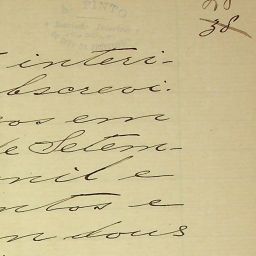 38
PINTO
interi-
bscrevi.
os em
de Setem-
mil e
ntos e
dous